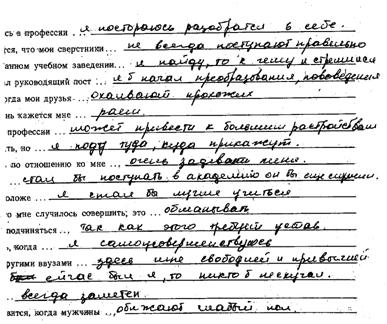 сь в профессии ... я постораюсь разобратся в себе.
тся, что мои сверстники ... не всегда поступают правильно
атном учебном заведении... я пойду, то к чему и стремился
ал руководящий пост ... я б начал преобразования, нововедения
огда мои друзья... охаивают прохожих
нь кажется мне ... раем.
профессии ... может привести к большим растройствам
ть, но ... я пойду туда, куда прикажут.
. по отношению ко мне ... очень задевали меня.
... стал бы поступать в академию он бы еще
оложе ... я стал бы лучше учиться
о мне случилось совершить; это ... обманывать
подчиняться ... так как этого требует устав.
ь, когда ... я самоусовершенствуюсь
ругими вузами ... здесь иные свободней и привычней
сейчас был я, то никто б нескучал.
... всегда заметен
вится, когда мужчины ... обижают слабый пол.